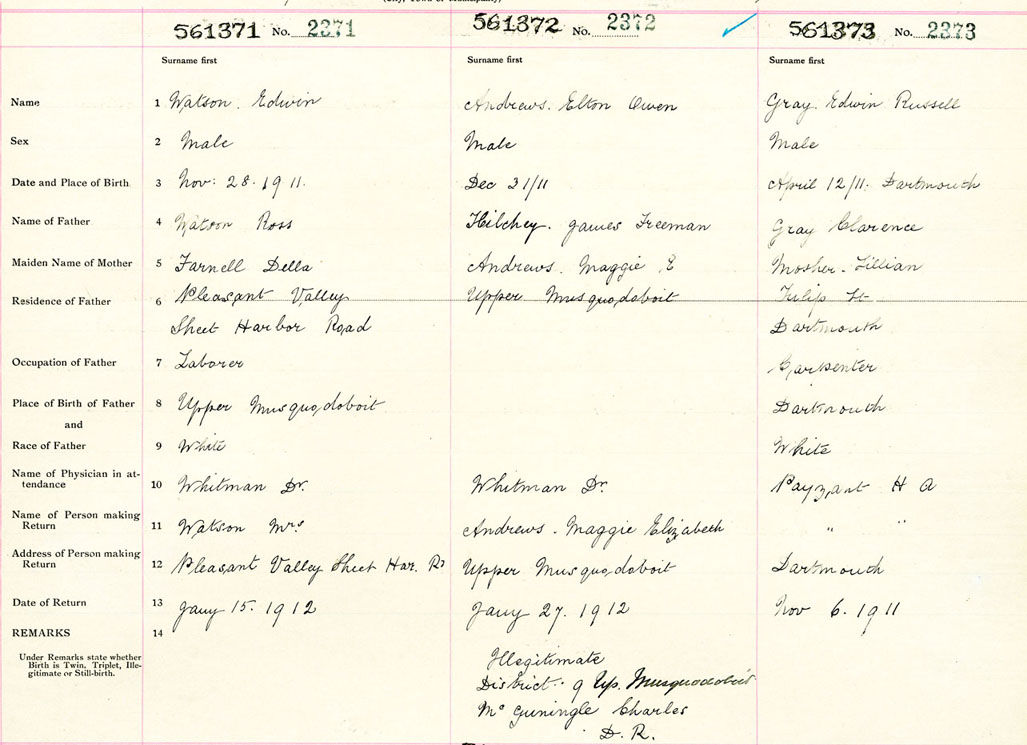 (City, Town or Municipality)
561371 No. 2371 561372 No. 2372 561373 No. 2373
Surname first Surname first Surname first
Name 1 Watson. Edwin Andrews. Elton Owen Gray. Edwin Russell
Sex 2 Male Male Male
Date and Place of Birth 3 Nov: 28. 1911. Dec 31/11 April 12/11. Dartmouth
Name of Father 4 Watson Ross Hilchey. James Freeman Gray Clarence
Maiden Name of Mother 5 Farnell Della Andrews. Maggie E Mosher. Lillian
Residence of Father 6 Pleasant Valley Upper Musquodoboit Tulip St
Sheet Harbor Road Dartmouth
Occupation of Father 7 Laborer Carpenter
Place of Birth of Father 8 Upper Musquodoboit Dartmouth
and
Race of Father 9 White White
Name of Physician in at-
tendance 10 Whitman Dr. Whitman Dr. Payzant H A
Name of Person making
Return 11 Watson Mrs Andrews. Maggie Elizabeth " "
Address of Person making
Return 12 Pleasant Valley Sheet Har. Rd Upper Musquodoboit Dartmouth
Date of Return 13 Jany 15. 1912 Jany 27. 1912 Nov 6. 1911
REMARKS 14
Under Remarks state whether
Birth is Twin, Triplet, Ille-
gitimate or Still-birth.
Illegitimate
District. 9 Up. Musquodoboit
Charles
D. R.